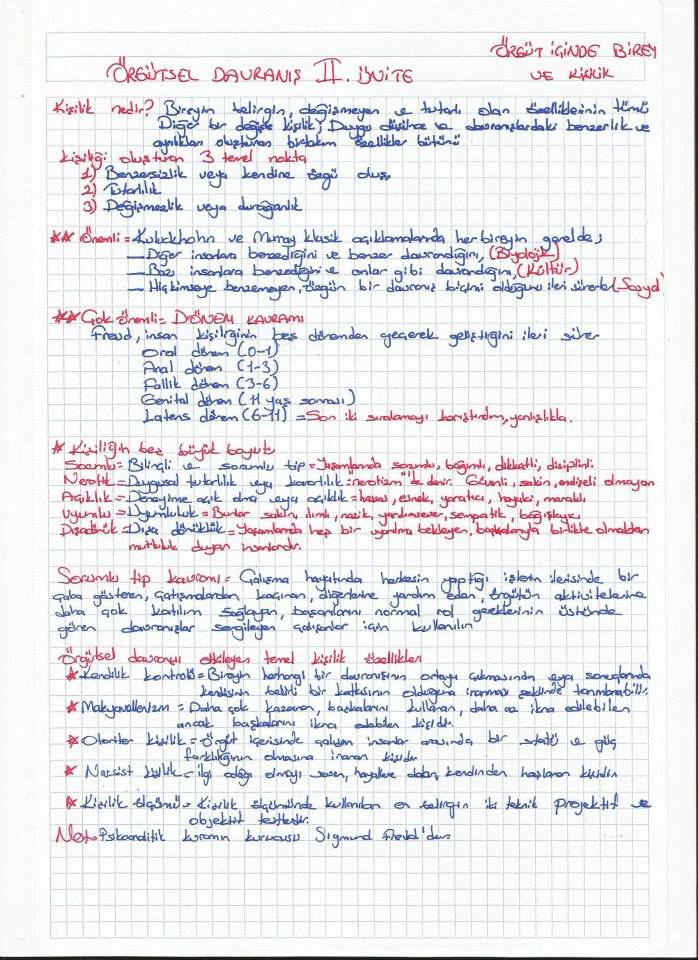 ÖRGÜT İÇİNDE BİREY
VE KİŞİLİK
ÖRGÜTSEL DAVRANIŞ II. ÜNİTE
Kişilik nedir? Bireyin belirgin, değişmeyen ve tutarlı olan özelliklerinin tümü
Diğer bir değişle kişilik; Duygu düşünce ve davranışlardaki benzerlik ve
ayrılıkları oluşturan birtakım özellikler bütünü
Kişiliği oluşturan 3 temel nokta
1) Benzersizlik veya kendine özgü oluş,
2) Tutarlılık
3) Değişmezlik veya durağanlık
** Önemli = Kuluckhohn ve Murray klasik açıklamalarında her bireyin genelde;
— Diğer insanlara benzediğini ve benzer davrandığını, (Biyolojik)
— Bazı insanlara benzediğini ve onlar gibi davrandığını, (Kültür)
— Hiçkimseye benzemeyen, özgün bir davranış biçimi olduğunu ileri sürerler (Sosyal)
** Çok önemli = DÖNEM KAVRAMI
Freud, insan kişiliğinin beş dönemden geçerek geliştiğini ileri sürer
Oral dönem (0-1)
Anal dönem (1-3)
Fallik dönem (3-6)
Genital dönem (11 yaş sonrası)
Latens dönem (6-11) = Son iki sıralamayı karıştırdım, yanlışlıkla.
* Kişiliğin beş büyük boyutu
Sorumlu = Bilinçli ve sorumlu tip = Yaşamlarında sorumlu, bağımlı, dikkatli, disiplinli.
Nerotik = Duygusal tutarlılık veya kararlılık = "nerotizm" 'de denir. Güvenli, sakin, endişeli olmayan
Açıklık = Deneyime açık olma veya açıklık = hassas, esnek, yaratıcı, hayalci, meraklı
Uyumlu = Uyumluluk = Bunlar sakin, ılımlı, nazik, yardımsever, sempatik, bağışlayıcı
Dışadönük = Dışa dönüklük = Yaşamlarında hep bir uyarılma bekleyen, başkalarıyla birlikte olmaktan
mutluluk duyan insanlardır.
Sorumlu tip kavramı = Çalışma hayatında herkesin yaptığı işlerin ilerisinde bir
çaba gösteren, çatışmalardan kaçınan, diğerlerine yardım eden, örgütün aktivitelerine
daha çok katılım sağlayan, başarılarını normal rol gereklerinin üstünde
gören davranışlar sergileyen çalışanlar için kullanılır
Örgütsel davranışı etkileyen temel kişilik özellikleri
* Kendilik kontrolü = Bireyin herhangi bir davranışının ortaya çıkmasında veya sonuçlarında
kendisinin belirli bir katkısının olduğuna inanması şeklinde tanımlanabilir.
* Makyavellenizm = Daha çok kazanan, başkalarını kullanan, daha az ikna edilebilen
ancak başkalarını ikna edebilen kişidir.
* Otoriter kişilik = Örgüt içerisinde çalışan insanlar arasında bir statü ve güç
farklılığının olmasına inanan kişidir
* Narsist kişilik = ilgi odağı olmayı seven, hayallere dalan, kendinden hoşlanan kişidir
* Kişilik ölçümü = Kişilik ölçümünde kullanılan en belirgin iki teknik projektif ve
objektif testlerdir.
Not = Psikoanalitik kuramın kurucusu Sigmund Freud'dur